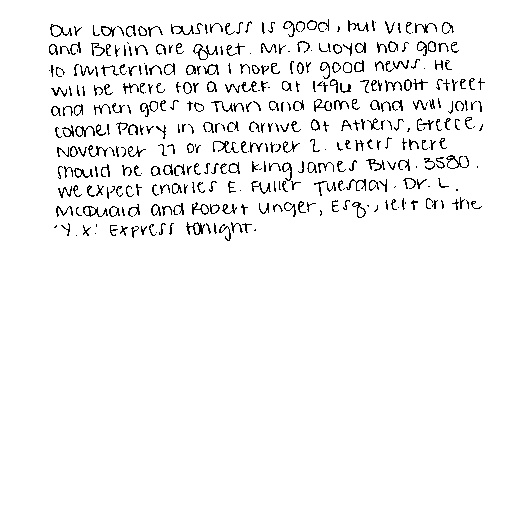 Our London business is good, but Vienna
and Berlin are quiet. Mr. D. Lloyd has gone
to Switzerlind and I hope for good news. He
will be there for a week at 1496 Zermott street
and then goes to Turin and Rome and will join
colonel Parry in and arrive at Athens, Greece,
November 27 or December 2. Letters there
should be addressed King James Blvd. 3580.
We expect Charles E. Fuller Tuesday. Dr. L.
McQuaid and Robert Unger, Esq., left on the
'Y.X.' Express tonight.